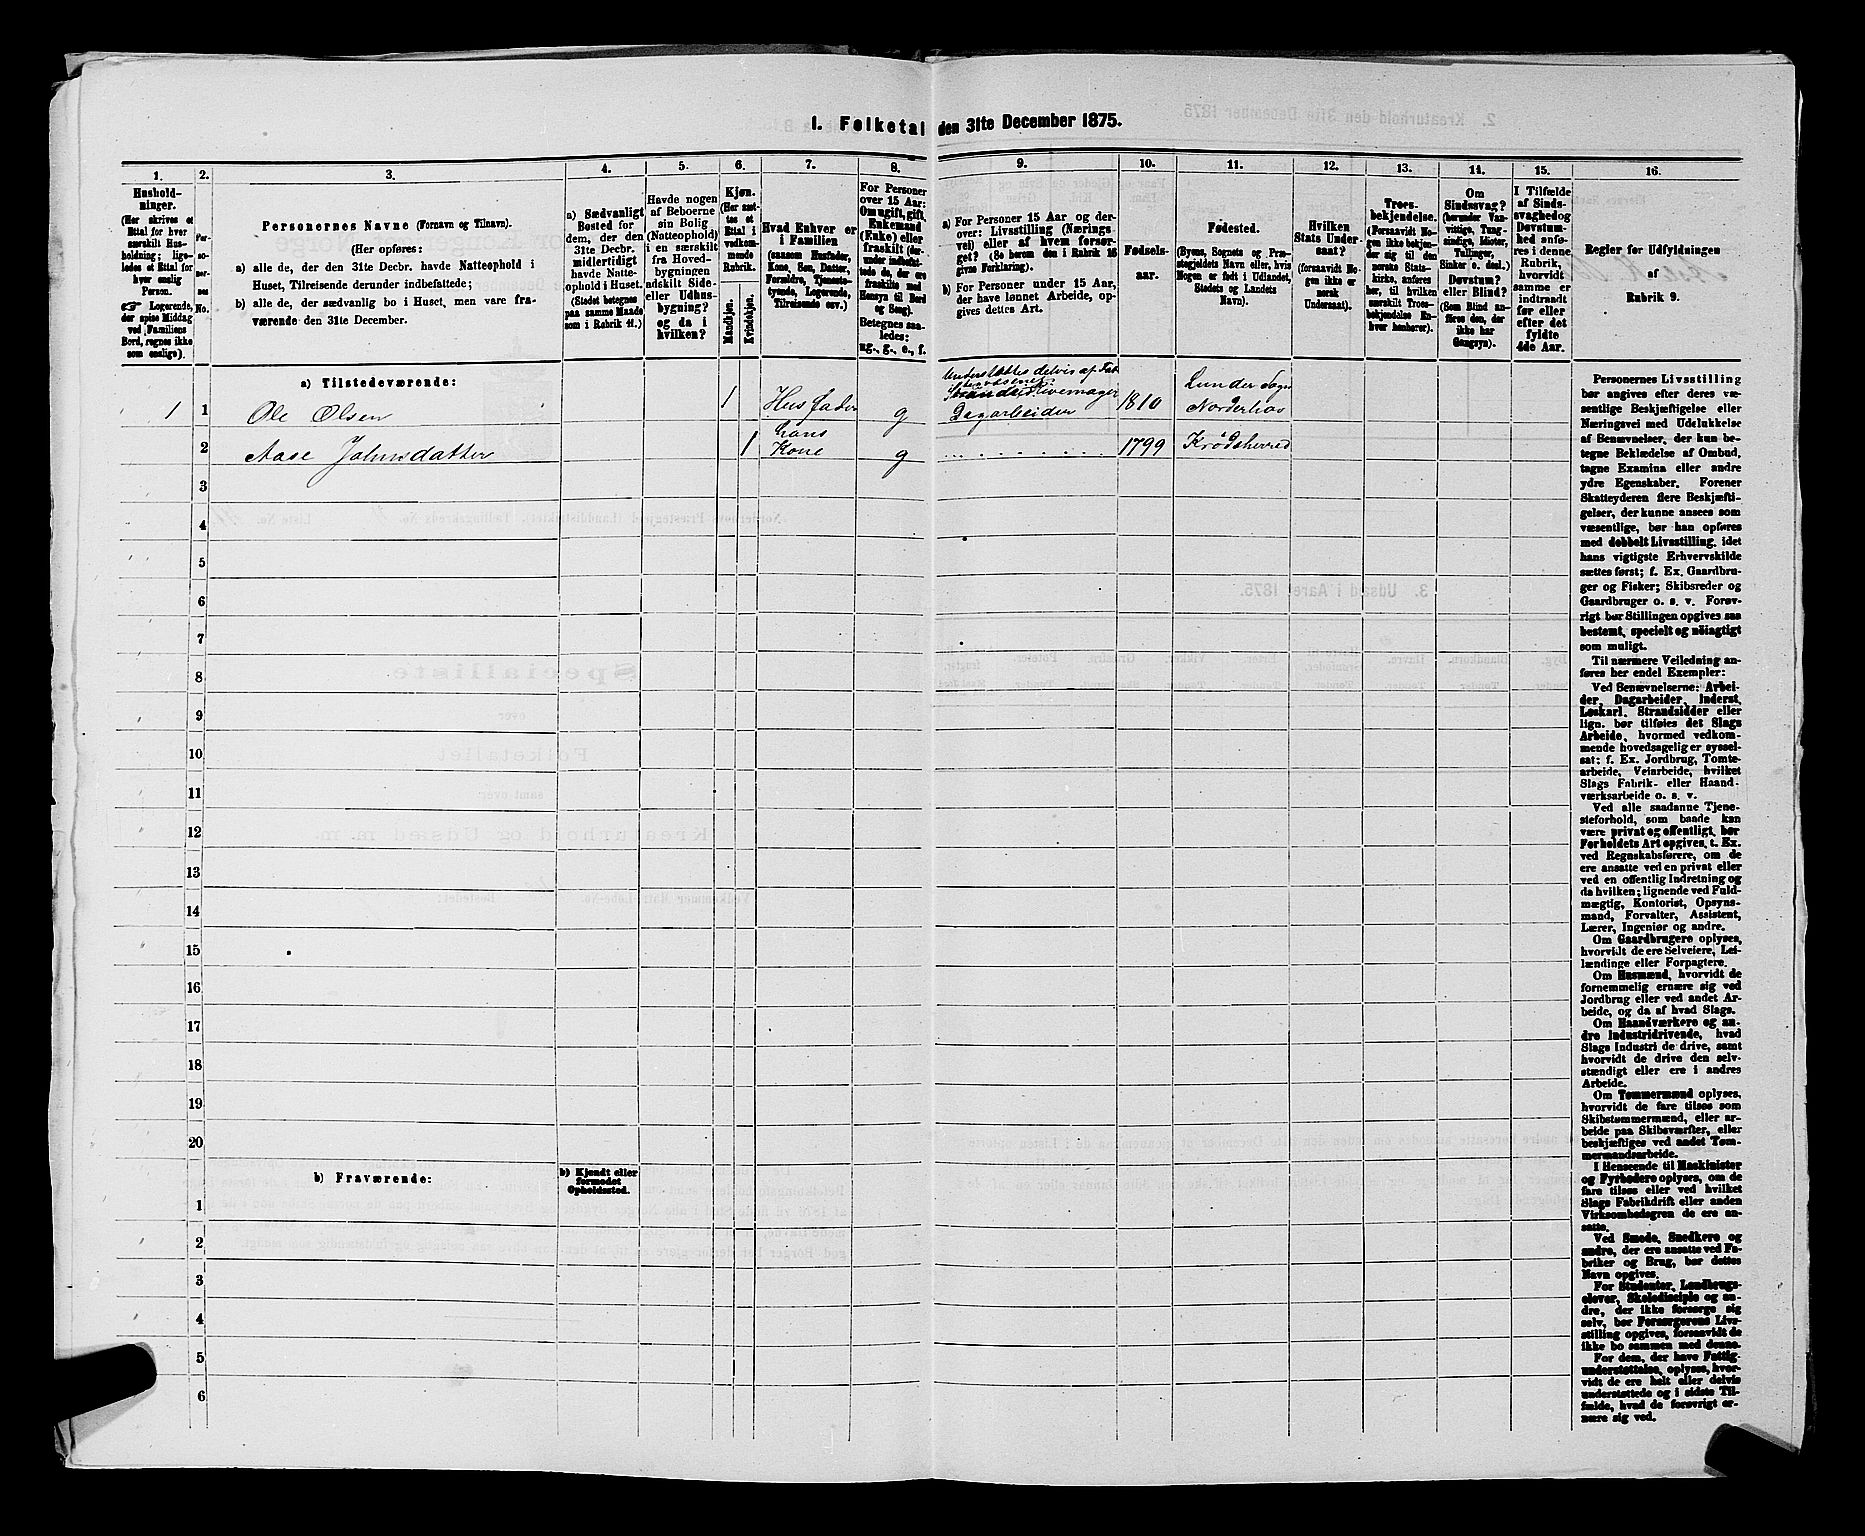 1. Folketal den 31te December 1875.
1.
2.
3.
4.
5.
6.
7.
8.
9.
10.
11.
12.
13.
14.
15.
16.
Hushold-
ninger.
(Her skrives et
Ettal for hver
særskilt Hus-
holdning; lige-
ledes et Ettal for
hver enslig
Person.
☞ Logerende,
der spise Middag
ved Familiens
Bord, regnes ikke
som enslige).
Per-
so-
ner-
nes
No.
Personernes Navne (Fornavn og Tilnavn).
(Her opføres:
a) alle de, der den 31te Decbr. havde Natteophold i
Huset, Tilreisende derunder indbefattede;
b) alle de, der sædvanlig bo i Huset, men vare fra-
værende den 31te December.
a) Sædvanligt
Bosted for
dem, der den
31te Decbr.
midlertidigt
havde Natte-
ophold i Huset.
(Stedet betegnes
paa samme Maade
som i Rubrik 11.)
Havde nogen
af Beboerne
sin Bolig
(Natteophold)
i en særskilt
fra Hoved-
bygningen
adskilt Side-
eller Udhus-
bygning?
og da i
hvilken?
Kjøn.
(Her sæt-
tes et
Ettal i
vedkom-
mende
Rubrik.
Mandkjøn.
Kvindekjøn.
Hvad Enhver er
i Familien
(saasom Husfader,
Kone, Søn, Datter,
Forældre, Tjeneste-
tyende, Logerende,
Tilreisende osv.)
For Personer
over 15 Aar:
Om ugift, gift,
Enkemand
(Enke) eller
fraskilt (der-
under indbefat-
tede de, der ere
fraskilte med
Hensyn til Bord
og Seng).
Betegnes saa-
ledes:
ug., g., e., f.
a) For Personer 15 Aar og der-
over: Livsstilling (Nærings-
vei) eller af hvem forsør-
get? (Se herom den i Rubrik 16
givne Forklaring).
b) For Personer under 15 Aar,
der have lønnet Arbeide, op-
gives dettes Art.
Fødsels-
aar.
Fødested.
(Byens, Sognets og Præ-
stegjeldets Navn eller, hvis
Nogen er født i Udlandet,
Stedets og Landets
Navn).
Hvilken
Stats Under-
saat?
(forsaavidt No-
gen ikke er
norsk
Undersaat).
Troes-
bekjendelse.
(Forsaavidt No-
gen ikke bekjen-
der sig til den
norske Stats-
kirke, anføres
her, til hvilken
særskilt Troes-
bekjendelse En-
hver henhører).
Om
Sindssvag?
(herunder Van-
vittige, Tung-
sindige, Idioter,
Tullinger,
Sinker o. desl.)
Døvstum?
eller Blind?
(Som Blind an-
føres den, der
ikke har
Gangsyn).
I Tilfælde
af Sinds-
svaghed og
Døvstum-
hed anfø-
res i denne
Rubrik,
hvorvidt
samme er
indtraadt
før eller
efter det
fyldte
4de Aar.
Regler for Udfyldningen
af
Rubrik 9.
a) Tilstedeværende:
1 1 Ole Olsen 1 Husfader g Understøttes delvis af Fat
Dagarbeider 1810 Lunder Sogn
Norderhov
2 Aase Johnsdatter 1 hans
Kone g 1799 Krødsherred
3
4
5
6
7
8
9
10
11
12
13
14
15
16
17
18
19
20
b) Fraværende:
b) Kjendt eller
formodet
Opholdssted.
1
2
3
4
5
6
Personernes Livsstilling
bør angives efter deres væ-
sentlige Beskjæftigelse eller
Næringsvei med Udelukkelse
af Benævnelser, der kun be-
tegne Beklædelse af Ombud,
tagne Examina eller andre
ydre Egenskaber. Forener
Skatteyderen flere Beskjæfti-
gelser, der kunne ansees som
væsentlige, bør han opføres
med dobbelt Livsstilling, idet
hans vigtigste Erhvervskilde
sættes først; f. Ex. Gaardbru-
ger og Fisker; Skibsreder og
Gaardbruger o. s. v. Forøv-
rigt bør Stillingen opgives saa
bestemt, specielt og nøiagtigt
som muligt.
Til nærmere Veiledning an-
føres her endel Exempler:
Ved Benævnelserne: Arbei-
der, Dagarbeider, Inderst,
Løskarl, Strandsidder eller
lign. bør tilføies det Slags
Arbeide, hvormed vedkom-
mende hovedsagelig er syssel-
sat; f. Ex. Jordbrug, Tomte-
arbeide, Veiarbeide, hvilket
Slags Fabrik- eller Haand-
værksarbeide o. s. v.
Ved alle saadanne Tjene-
steforhold, som baade kan
være privat og offentligt, bør
Forholdets Art opgives, t. Ex.
ved Regnskabsførere, om de
ere ansatte ved en privat eller
ved en offentlig Indretning og
da hvilken; lignende ved Fuld-
mægtig, Kontorist, Opsyns-
mand, Forvalter, Assistent,
Lærer, Ingeniør og andre.
Om Gaardbrugere oplyses,
hvorvidt de ere Selveiere, Lei-
lændinge eller Forpagtere.
Om Husmænd, hvorvidt de
fornemmelig ernære sig ved
Jordbrug eller ved andet Ar-
beide, og da af hvad Slags.
Om Haandværkere og an-
dre Industridrivende, hvad
Slags Industri de drive, samt
hvorvidt de drive den selv-
stændigt eller ere i andres
Arbeide.
Om Tømmermænd oplyses,
hvorvidt de fare tilsøs som
Skibstømmermænd, eller ar-
beide paa Skibsværfter, eller
beskjæftiges ved andet Tøm-
mermandsarbeide.
I Henseende til Maskinister
og Fyrbødere oplyses, om de
fare tilsøs eller ved hvilket
Slags Fabrikdrift eller anden
Virksomhedsgren de ere an-
satte.
Ved Smede, Snedkere og
andre, der ere ansatte ved Fa-
briker og Brug, bør dettes
Navn opgives.
For Studenter, Landbrugs-
elever, Skoledisciple og an-
dre, der ikke forsørge sig
selv, bør Forsørgerens Livs-
stilling opgives, forsaavidt de
ikke bo sammen med denne.
For dem, der have Fattig-
understøttelse, oplyses, hvor-
vidt de ere helt eller delvis
understøttede og i sidste Til-
fælde, hvad de forøvrigt er-
nære sig ved.